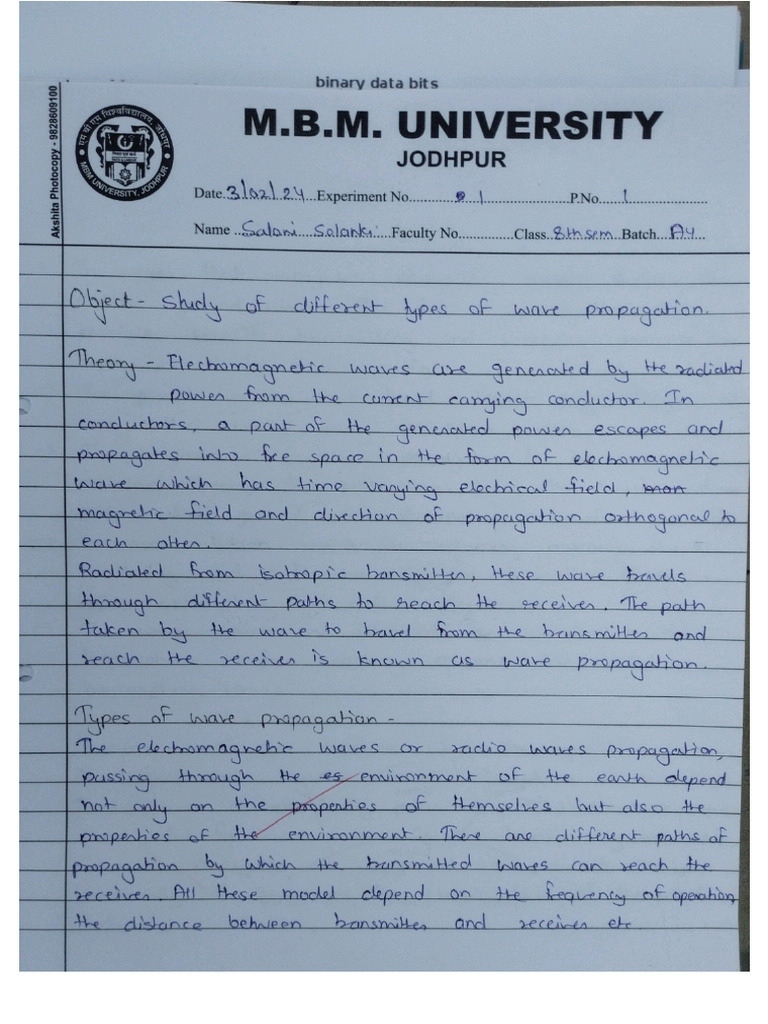 binary data bits
Akshita Photocopy - 9828609100
M.B.M. UNIVERSITY
JODHPUR
MBM UNIVERSITY, JODHPUR
Date 3/02/24 Experiment No. 01 P.No. 1
Name Saloni Solanki Faculty No. Class 8th sem Batch A4
Object - Study of different types of wave propagation.
Theory - Electromagnetic waves are generated by the radiated
power from the current carrying conductor. In
conductors, a part of the generated power escapes and
propagates into free space in the form of electromagnetic
wave which has time varying electrical field,
magnetic field and direction of propagation orthogonal to
each other.
Radiated from isotropic transmitter, these wave travels
through different paths to reach the receiver. The path
taken by the wave to travel from the transmitter and
reach the receiver is known as wave propagation.
Types of wave propagation -
The electromagnetic waves or radio waves propagation,
passing through the es environment of the earth depend
not only on the properties of themselves but also the
properties of the environment. There are different paths of
propagation by which the transmitted waves can reach the
receiver. All these model depend on the frequency of operation,
the distance between transmitter and receiver etc